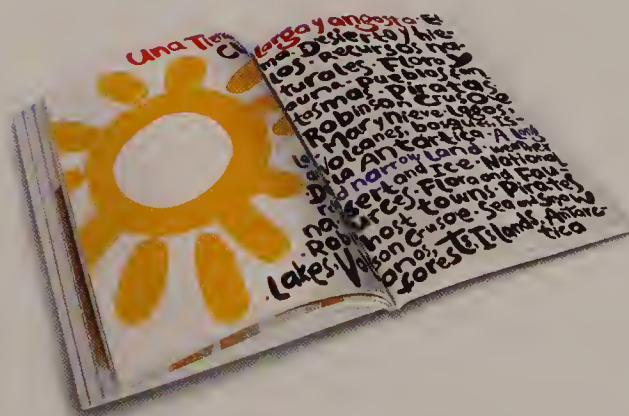 Una Tierra Larga y angosta. El
Clima. Desierto y hie
los. Recursos na
turales. Flora y
auna. Pueblos fan
tasmas. Piratas
Robinson Crusoe
Mar y nieve. Lagos.
Volcanes. Is
la Antártica. A Long
and narrow Land. weather
Desert and Ice. National
Resources. Flora and Fau
na. Ghost towns. Pirates
Robinson Crusoe. Sea and Snow
Lakes. Volcanos.
forests. Islands. Antarc
tica